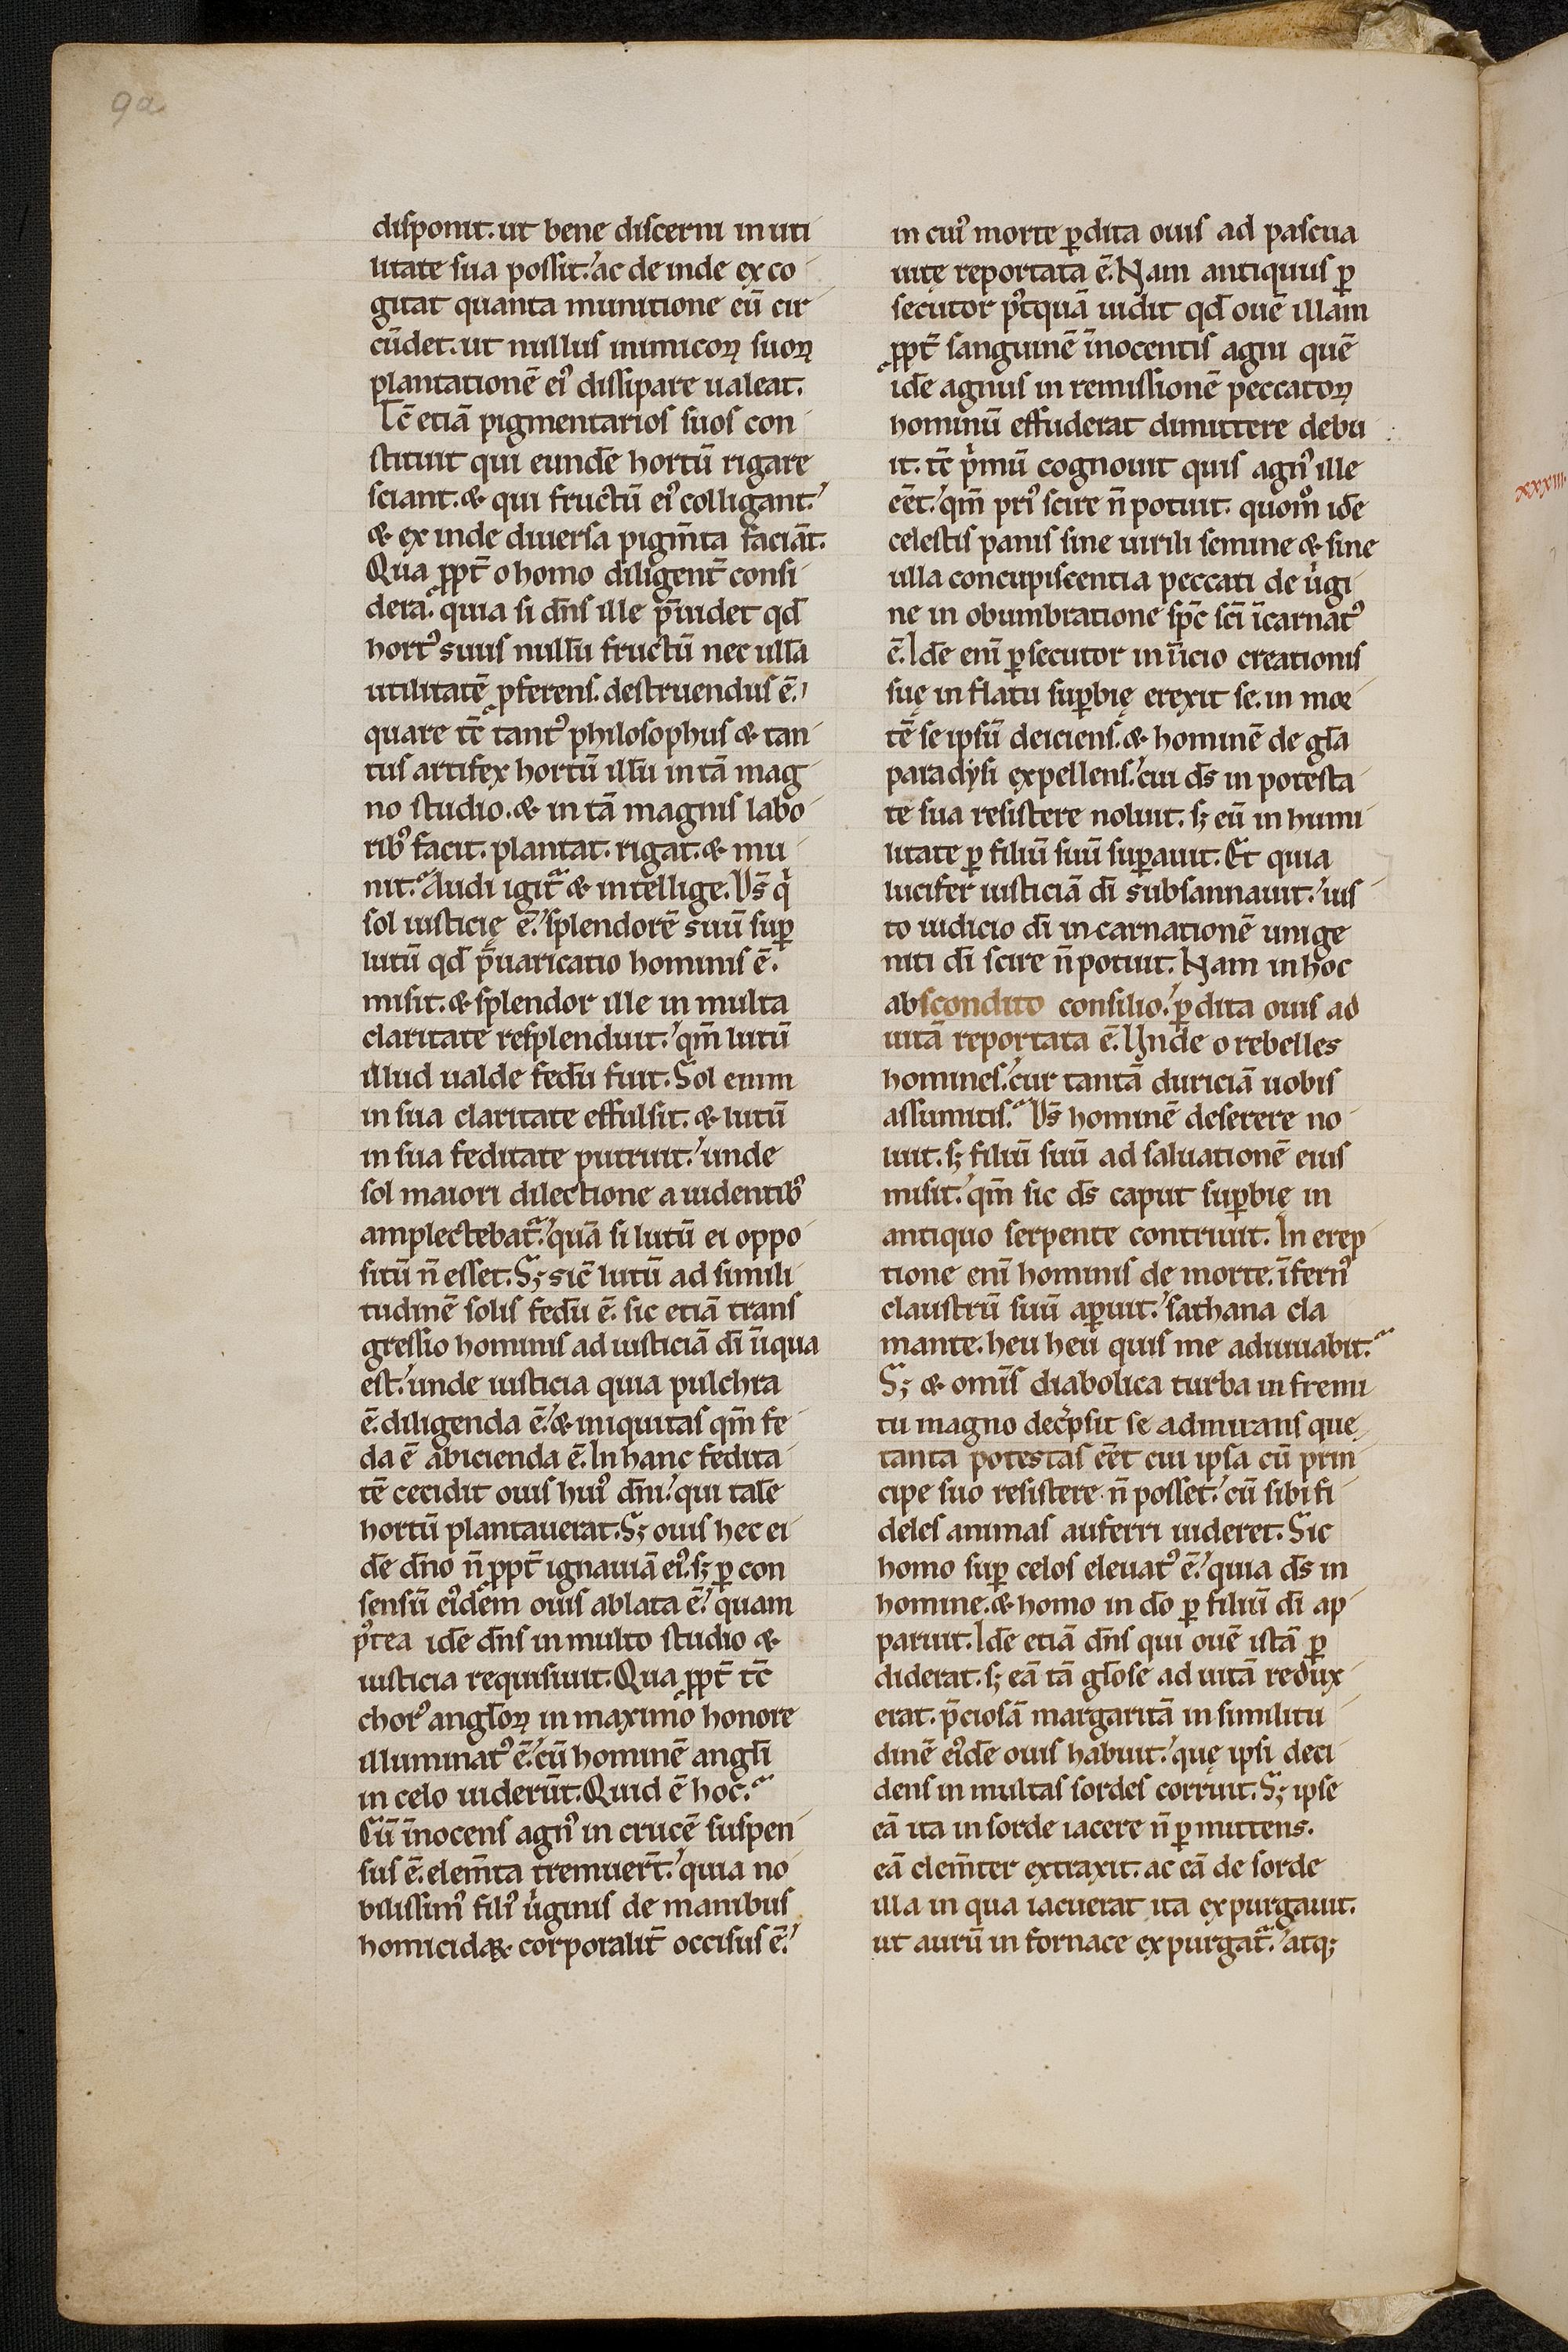 9a
disponit. ut bene discerni in uti
litate sua possit. ac deinde exco
gitat quanta munitione eū cir
cūdet. ut nullus inimicoꝝ suoꝝ
plantationē ei᷒ dissipare ualeat.
Tc̄ etiā pigmentarios suos con
stituit qui eundē hortū rigare
sciant. & qui fructū ei᷒ colligant.
& exinde diuersa pigm̄ta faciāt.
Qua ꝓpt̄ o homo diligent̄ consi
dera. quia si dn̄s ille p̄uidet qd̄
hort᷒ suus nullū fructū nec ullā
utilitatē ꝓferens. destruendus ē.
quare tc̄ tant᷒ philosophus & tan
tus artifex hortū illū in tā mag
no studio. & in tā magnis labo
rib᷒ facit. plantat. rigat. & mu
nit. Audi igit᷑ & intellige. Ds̄ qͥ
sol iusticię ē. splendorē suū suꝑ
lutū qd̄ p̄uaricatio hominis ē.
misit. & splendor ille in multa
claritate resplenduit. qm̄ lutū
illud ualde fedū fuit. Sol enim
in sua claritate effulsit. & lutū
in sua feditate putruit. unde
sol maiori dilectione a uidentib᷒
amplectebat᷑. quā si lutū ei oppo
sitū n̄ esset. Sꝫ sic̄ lutū ad simili
tudinē solis fedū ē. sic etiā trans
gressio hominis ad iusticiā di̅ iniqua
est. unde iusticia quia pulchra
ē. diligenda ē. & iniquitas qm̄ fe
da ē abicienda ē. In hanc fedita
tē cecidit ouis hui᷒ dn̄i. qui talē
hortū plantauerat. Sꝫ ouis hec ei
dē dn̄o n̄ ꝓpt̄ ignauiā ei᷒. sꝫ ꝑ con
sensū ei᷒dem ouis ablata ē. quam
p᷒tea idē dn̄s in multo studio &
iusticia requisiuit. Qua ꝓpt̄ tc̄
chor᷒ angl̄oꝝ in maximo honore
illuminat᷒ ē. cū hominē angl̄i
in celo uiderūt. Quid ē hoc.
Cū īnocens agn᷒ in crucē suspen
sus ē. elem̄ta tremuer̄t. quia no
bilissim᷒ fili᷒ uͥginis de manibus
homicidaꝝ corporalit̄ occisus ē.
in cui᷒ morte ꝑdita ouis ad pascua
uitę reportata ē. Nam antiquus ꝑ
secutor p᷒tquā uidit qd̄ ouē illam
ꝓpt̄ sanguinē īnocentis agni quē
idē agnus in remissionē peccatoꝝ
hominū effuderat dimittere debu
it. tc̄ pͥmū cognouit quis agn᷒ ille
eēt. qm̄ pri᷒ scire n̄ potuit. quom͛ idē
celestis panis sine uirili semine & sine
ulla concupiscentia peccati de uͥgi
ne in obumbratione sp̄c sc̄i īcarnat᷒
ē. Idē eni̅ ꝑsecutor in inicio creationis
suę in flatu suꝑbię erexit se. in mor
tē se ipsū deiciens. & hominē de gl̄a
paradysi expellens. cui ds̄ in potesta
te sua resistere noluit. sꝫ eū in humi
litate ꝑ filiū suū suꝑauit. Et quia
lucifer iusticiā di̅ subsannauit. ius
to iudicio di̅ incarnationē unige
niti di̅ scire n̄ potuit. Nam in hoc
abscondito consilio. ꝑdita ouis ad
uitā reportata ē. Unde o rebelles
homines. cur tantā duriciā uobis
assumitis. Ds̄ hominē deserere no
luit. sꝫ filiū suū ad saluationē eius
misit. qm̄ sic ds̄ caput suꝑbię in
antiquo serpente contriuit. In erep
tione eni̅ hominis de morte. īfern᷒
claustrū suū aꝑuit. sathana cla
mante. heu heu quis me adiuuabit.
Sꝫ & omi̅s diabolica turba in fremi
tu magno decͥpsit se admirans quę
tanta potestas eēt cui ipsa cū prin
cipe suo resistere n̄ posset. cū sibi fi
deles animas auferri uideret. Sic
homo suꝑ celos eleuat᷒ ē. quia ds̄ in
homine. & homo in dō ꝑ filiū di̅ ap
paruit. Idē etiā dn̄s qui ouē istā ꝑ
diderat. sꝫ eā tā gl̄ose ad uitā redux
erat. p̄ciosā margaritā in similitu
dinē ei᷒dē ouis habuit. quę ipsi deci
dens in multas sordes corruit. Sꝫ ipse
eā ita in sorde iacere n̄ ꝑmittens.
eā clem̄ter extraxit. ac eā de sorde
illa in qua iacuerat ita expurgauit.
ut aurū in fornace expurgat᷑. atqꝫ
xxxiiii.